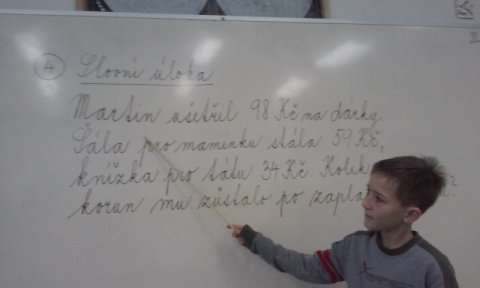 4 Slovní úloha
Martin ušetřil 98 Kč na dárky.
Šála pro maminku stála 59 Kč,
knížka pro tátu 34 Kč. Kolik
korun mu zůstalo po